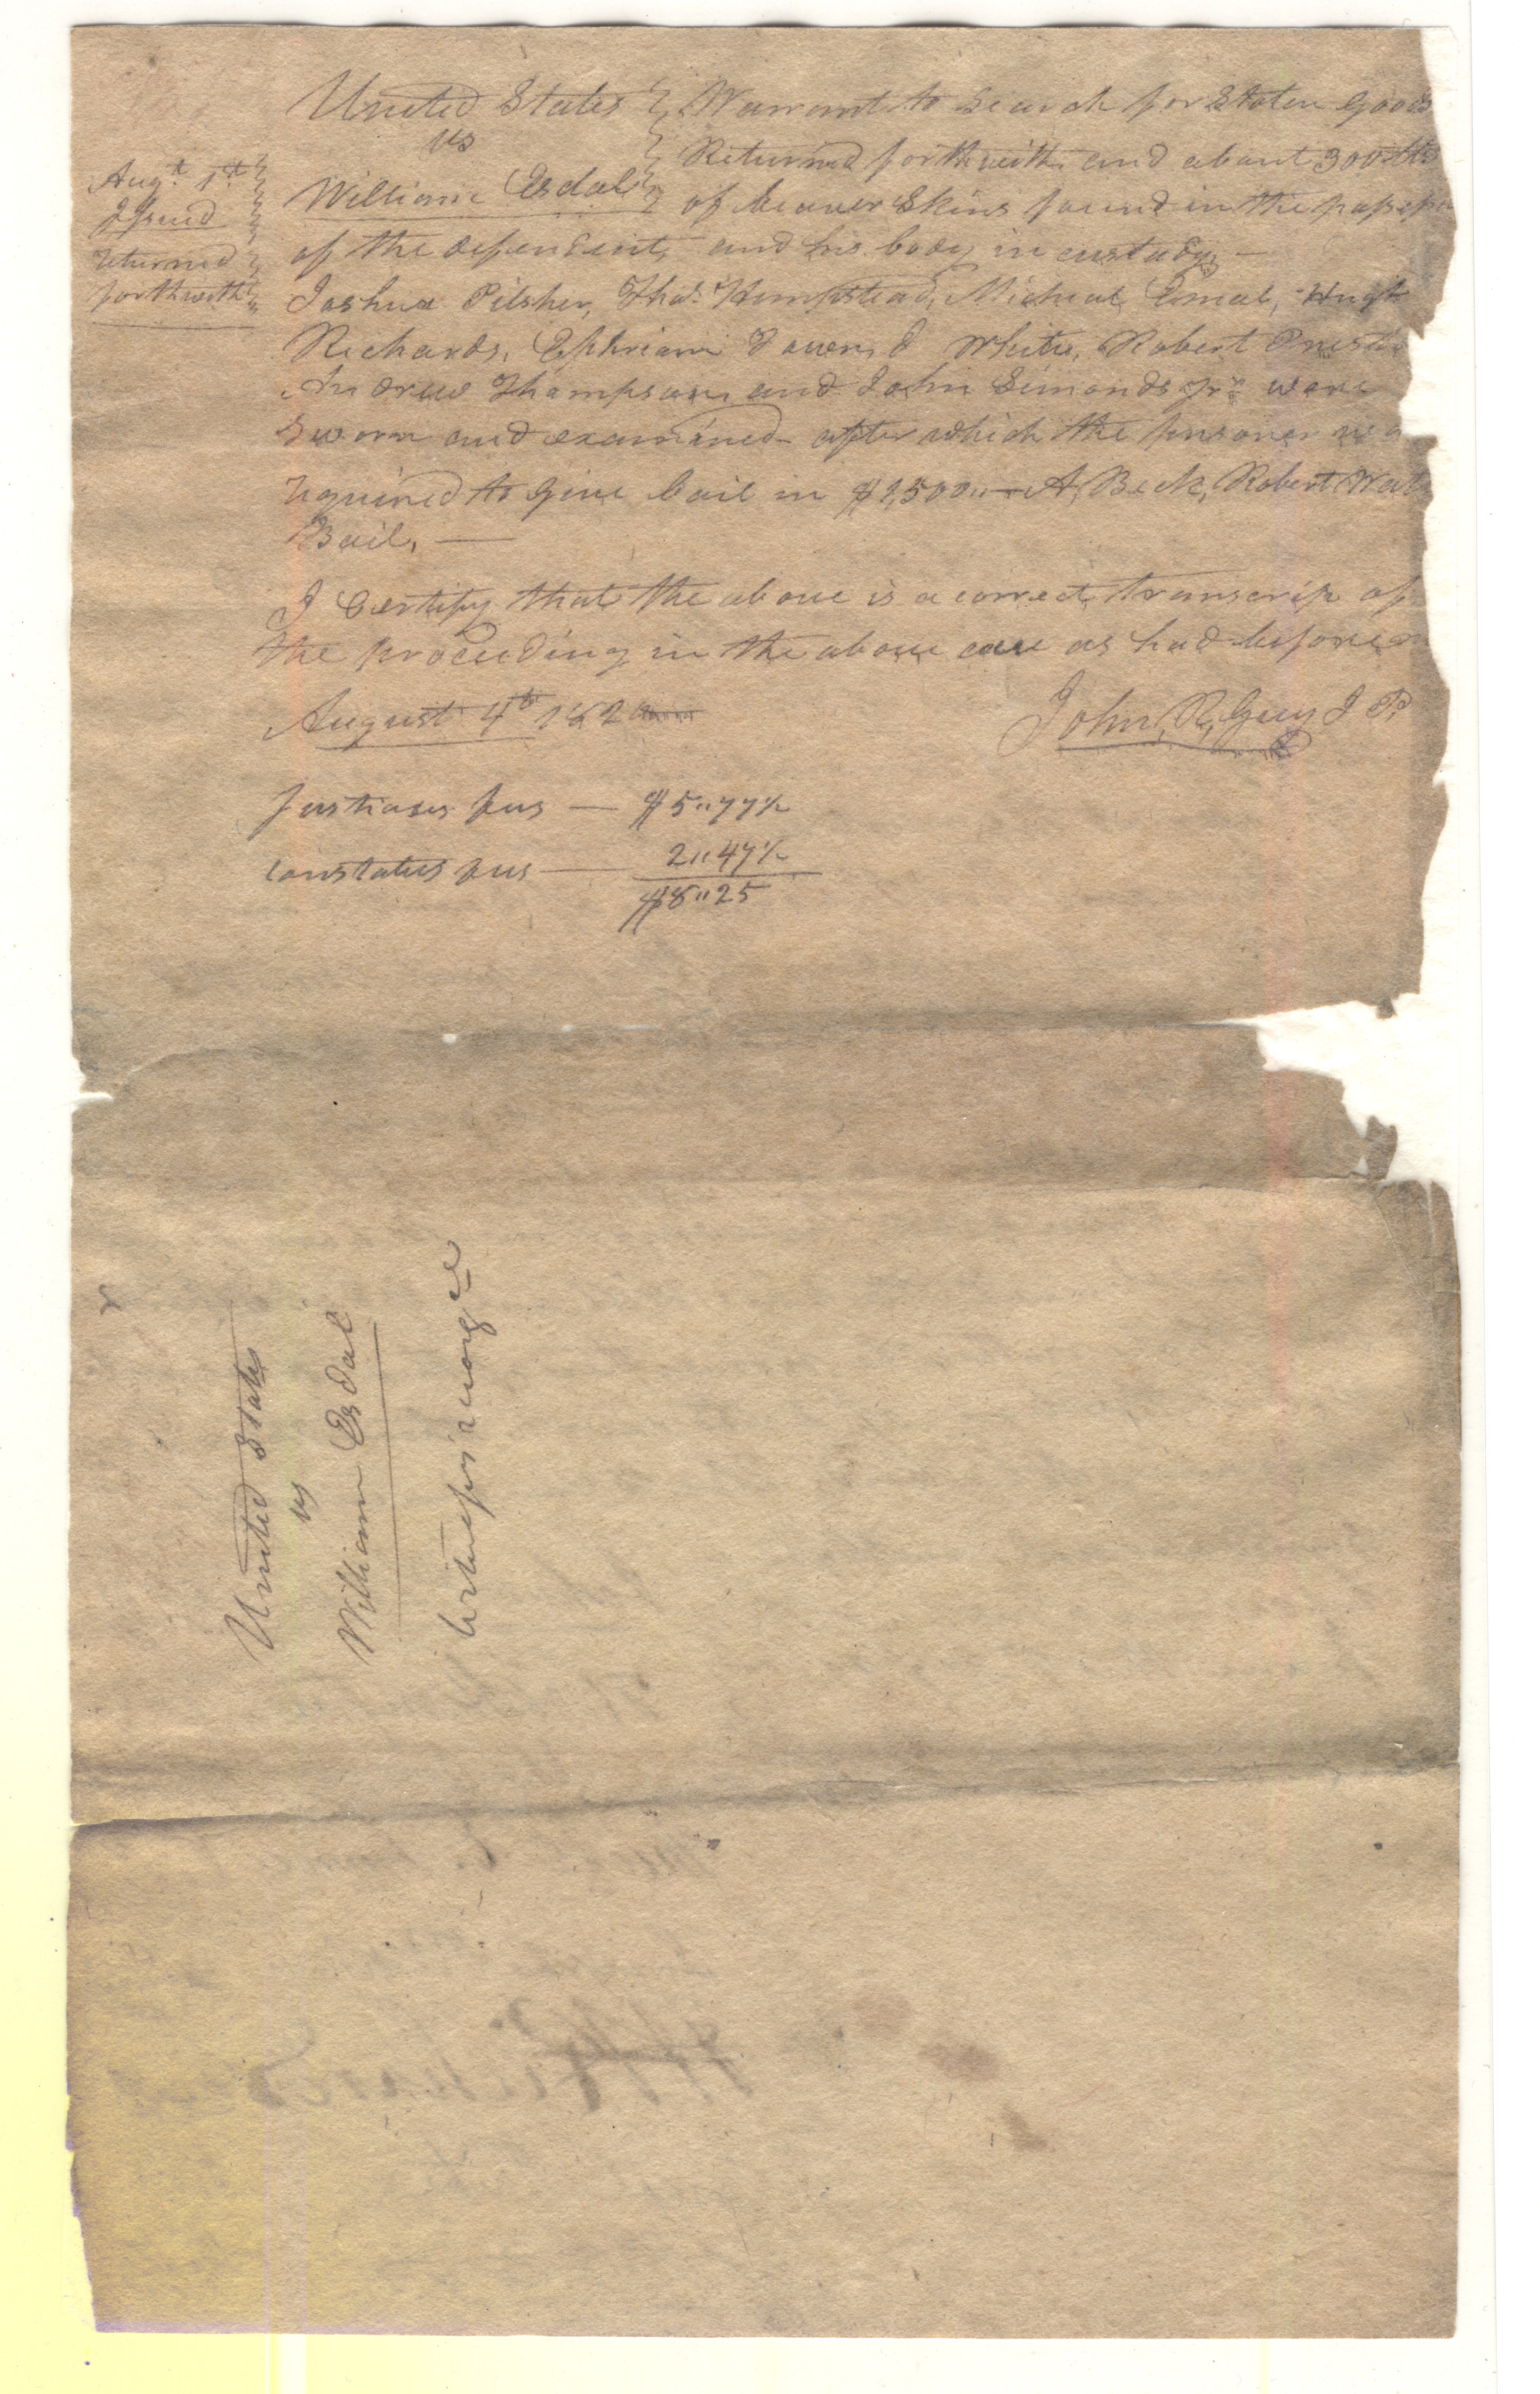 United States } Warrant to Search for Stolen Goods
vs
Returned forthwith and about 300 lbs
William Esdal } of beaver Skins found in the possession
Augt. 1st.
Issued
returned
forthwith
of the defendent, and his body in custody—
Joshua Pilsher, Thos. Hempstead, Micheal Emal, Hugh
Richards, Ephriam White, Robert
Andrew Thompson and John Simonds Jr. were
Sworn and examined after which the prisoner was
required to give bail in $1,500 — A, Beck, Robert
Bail, —
I Certify that the above is a correct transcrip of
the proceeding in the above case as had before
August 4th 182
John, R, Guy J P.
Justices fees — $5"77½
constables fees — 2"47½
$8"25
United States
vs
William Esdal